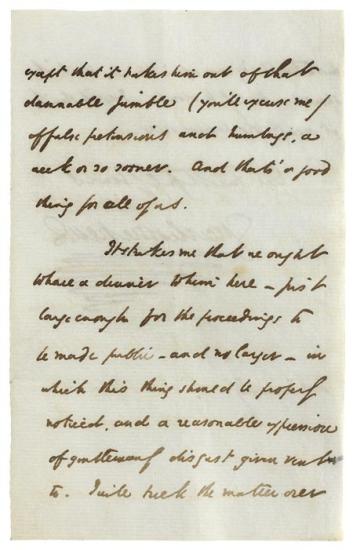 except that it takes him out of that
damnable jumble (you'll excuse me)
of false pretensions and humbugs, a
week or so sooner. And that's a good
thing for all of us.
It strikes me that we ought
to have a dinner to him here – just
large enough for the proceedings to
be made public – and no larger – in
which this thing should be properly
noticed, and a reasonable expression
of gentlemanly disgust given vent
to. I will turn the matter over